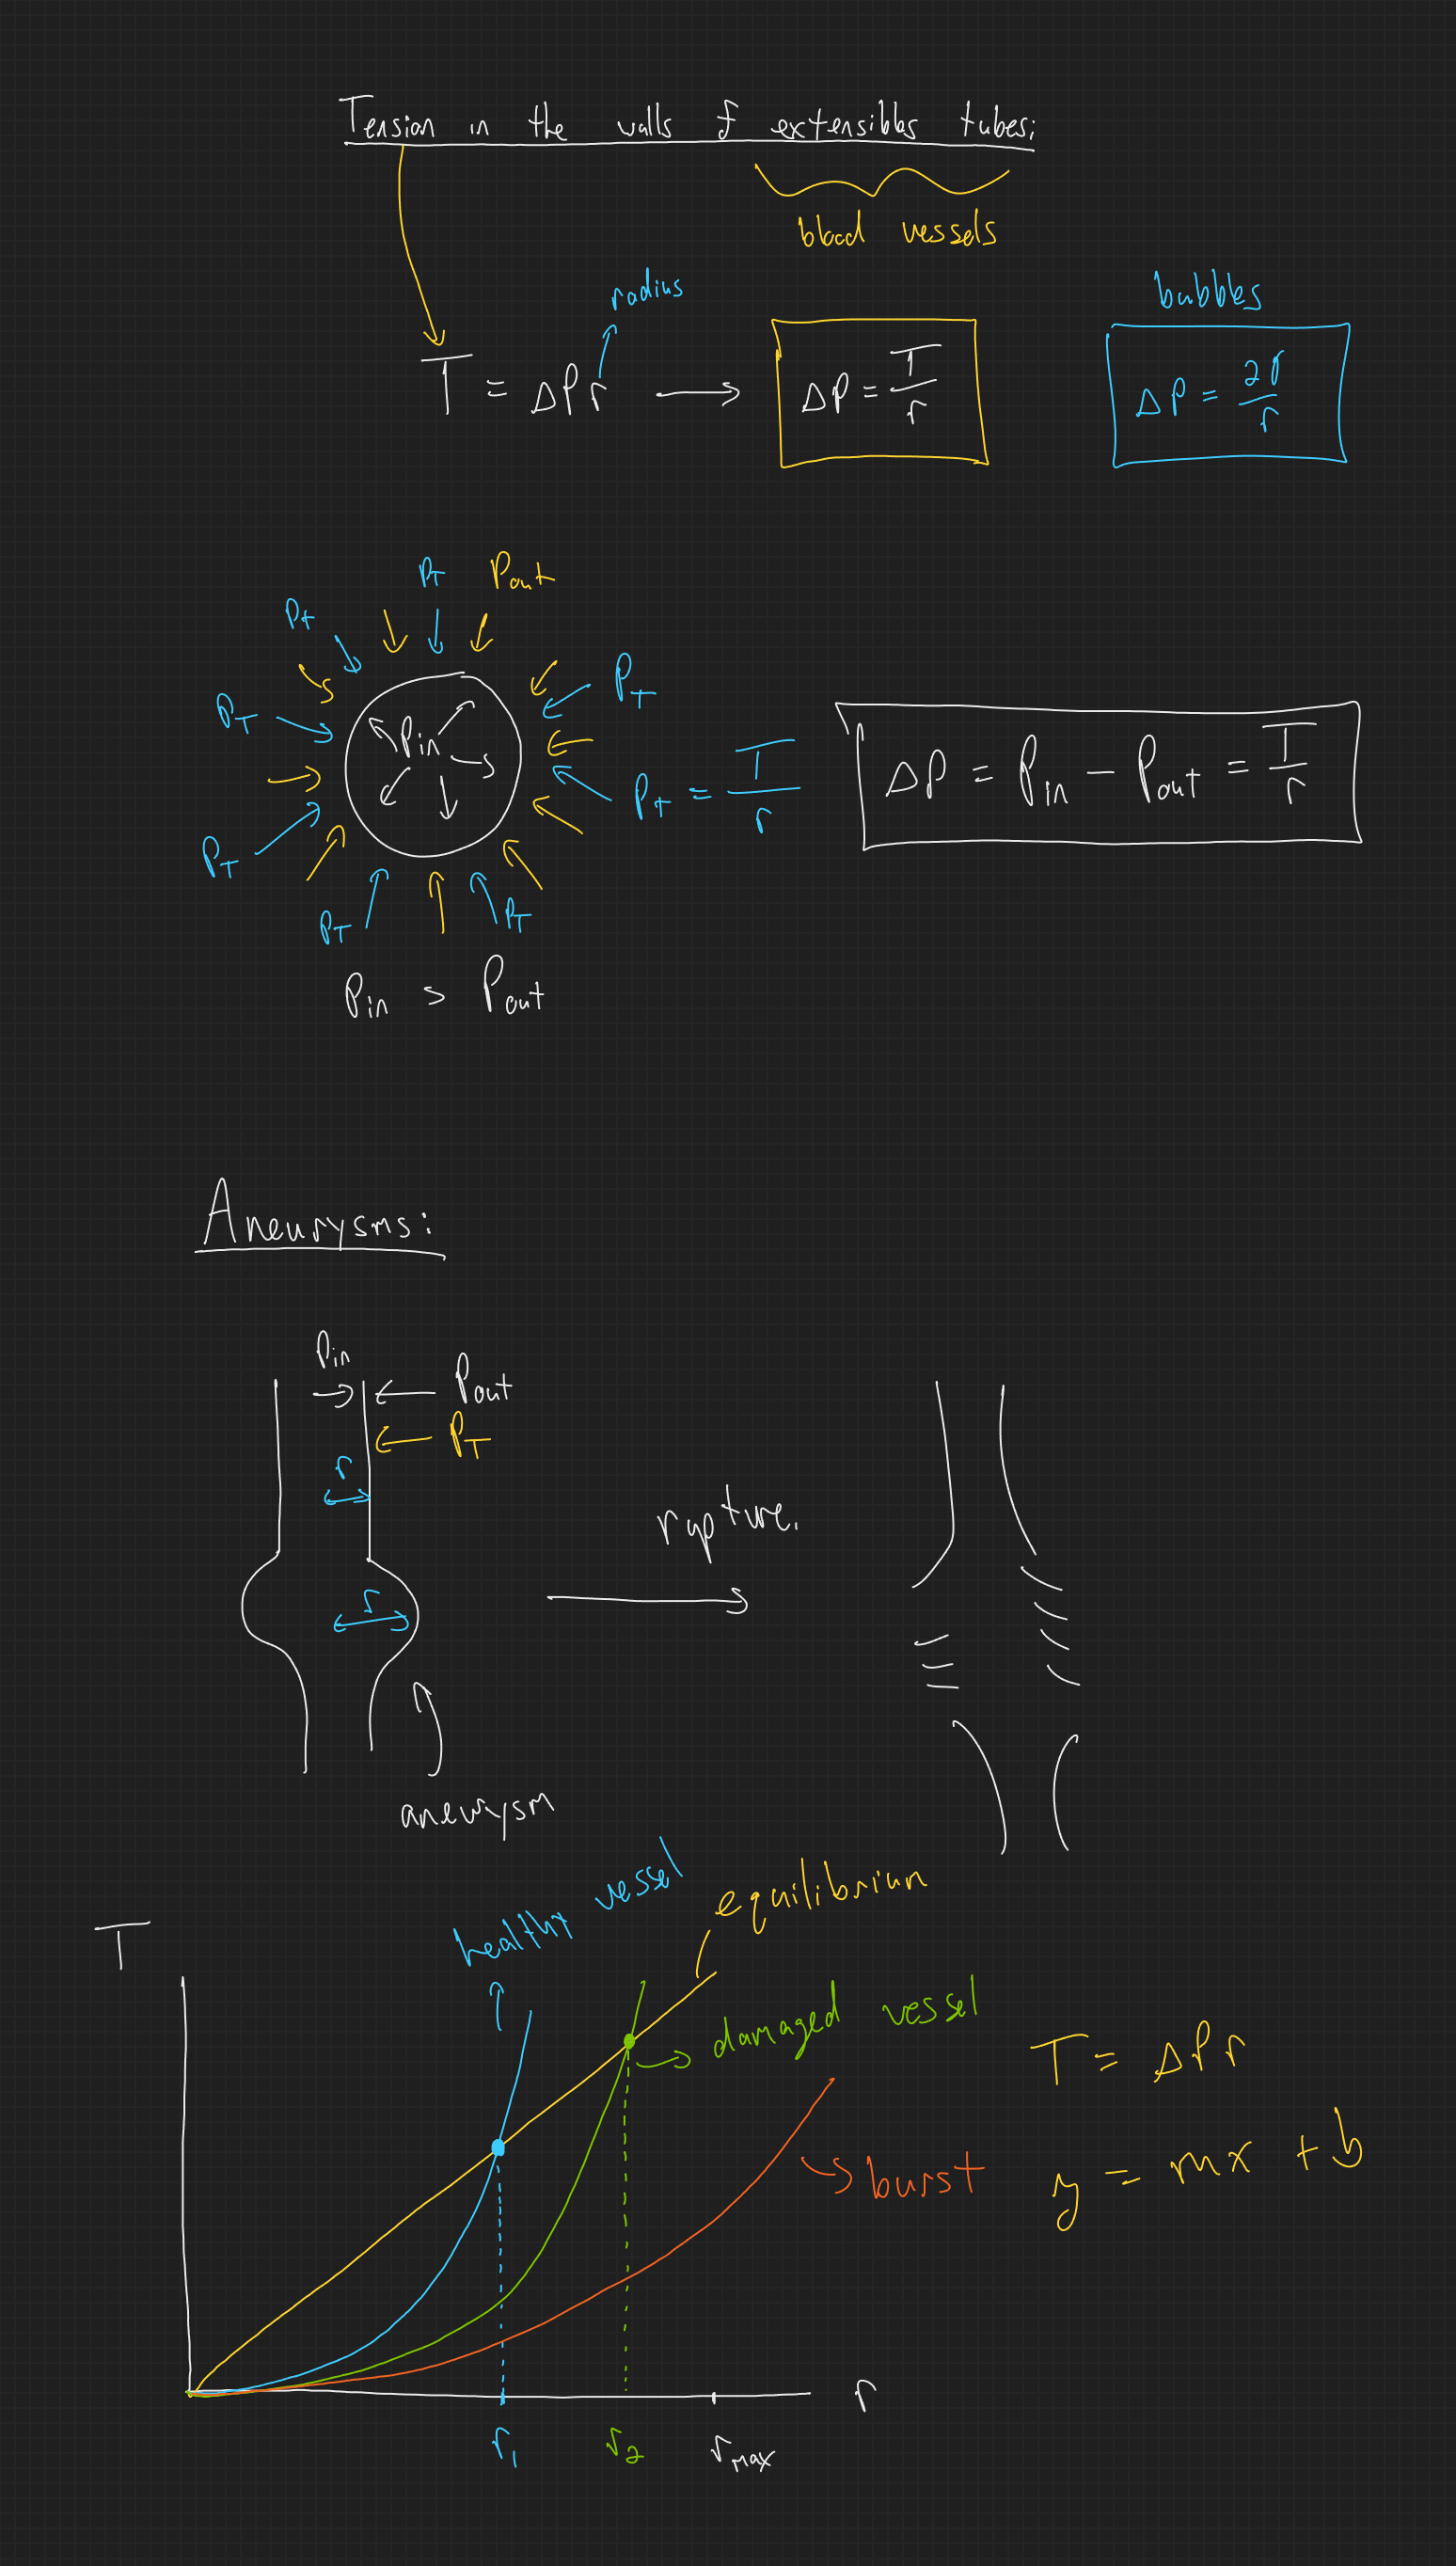 Tension in the walls of extensibles tubes:
blood vessels
radius
bubbles
T = ΔPr → ΔP = T/r
ΔP = 2γ/r
PT Pout
PT
PT
PT
Pin
PT = T/r
ΔP = Pin − Pout = T/r
PT
PT
PT
Pin > Pout
Aneurysms:
Pin
Pout
PT
r
rupture.
r
aneurysm
healthy vessel
equilibrium
T
damaged vessel
T = ΔPr
burst
y = mx + b
r
r1
r2
rmax